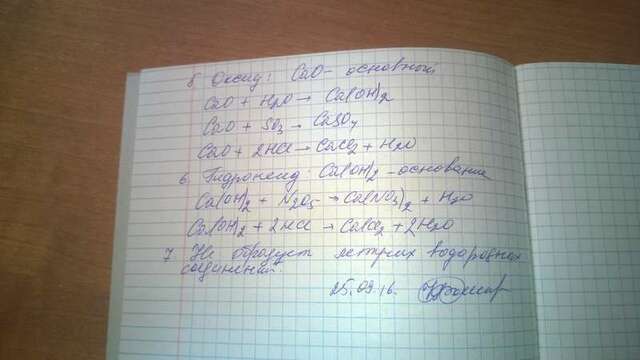 5 Оксид: CaO - основный
CaO + H2O → Ca(OH)2
CaO + SO3 → CaSO4
CaO + 2HCl → CaCl2 + H2O
6. Гидроксид: Ca(OH)2 - основание
Ca(OH)2 + N2O5 → Ca(NO3)2 + H2O
Ca(OH)2 + 2HCl → CaCl2 + 2H2O
7 Не образует летучих водородных
соединений.
25.09.16.